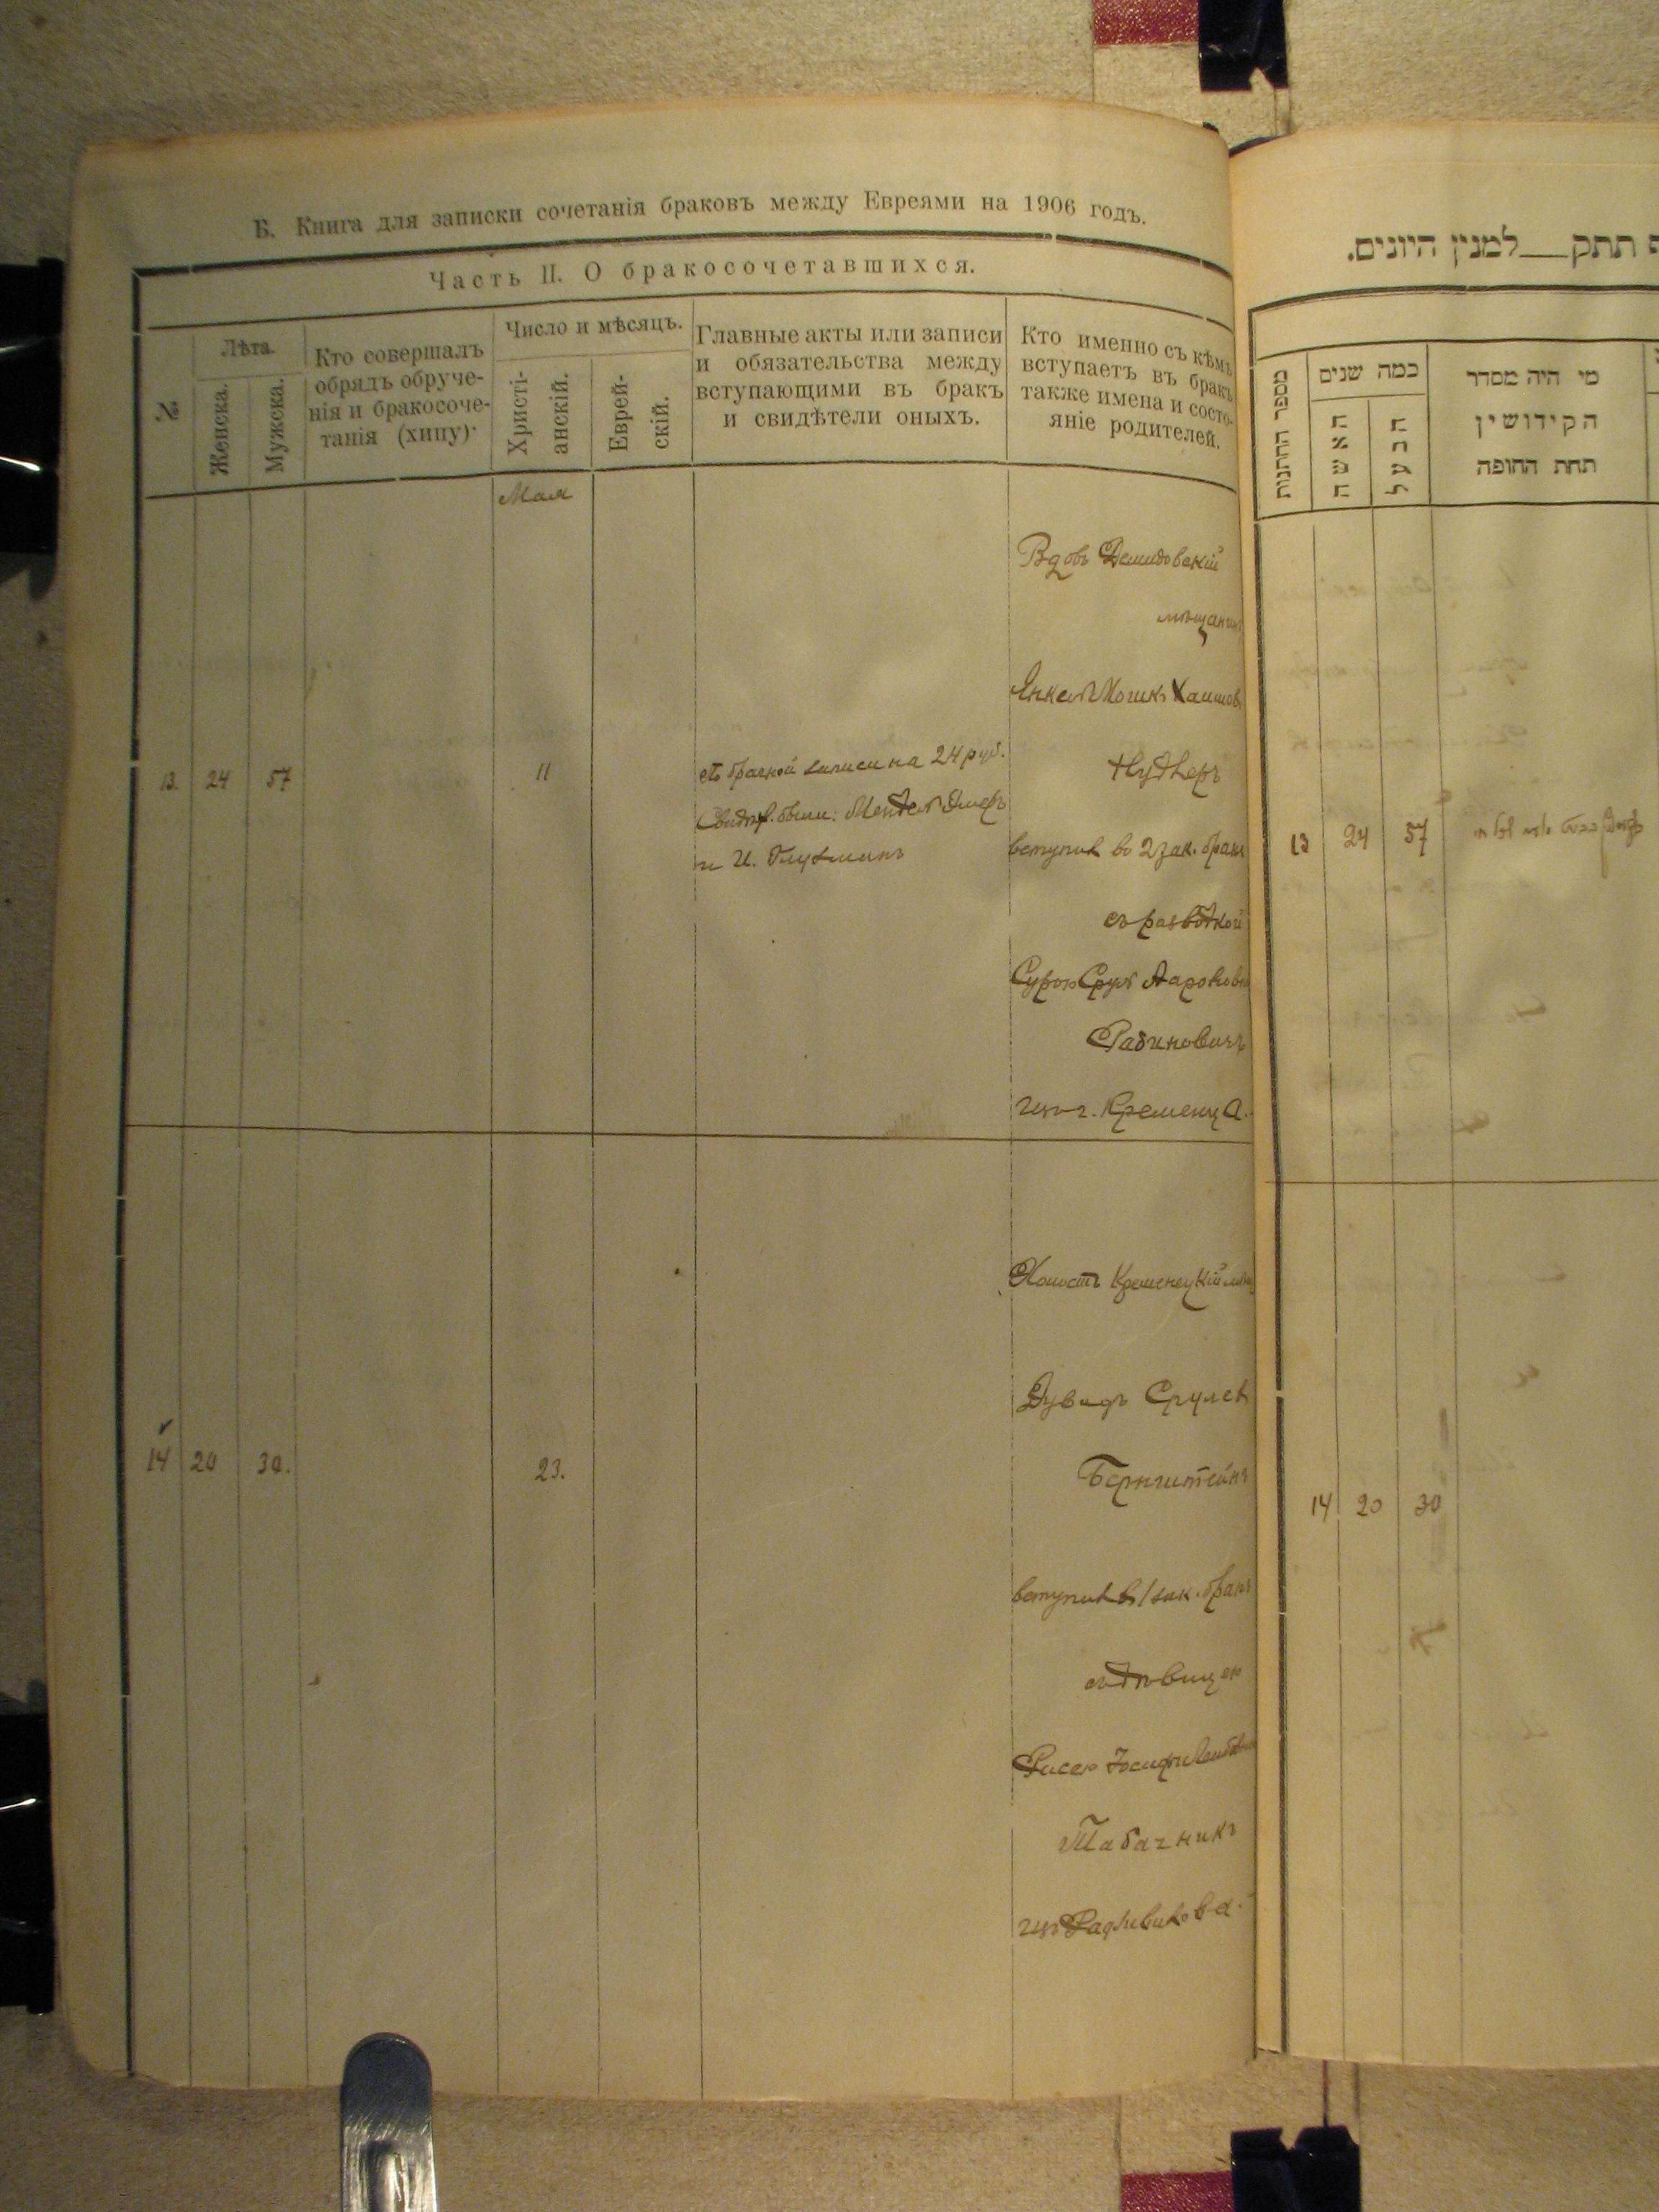 Б. Книга для записки сочетанія браковъ между Евреями на 1906 годъ.
Часть II. О бракосочетавшихся.
№
Лѣта.
Женска.
Мужска.
Кто совершалъ
обрядъ обруче-
нія и бракосоче-
танія (хипу).
Число и мѣсяцъ.
Христі-
анскій.
Еврей-
скій.
Главные акты или записи
и обязательства между
вступающими въ бракъ
и свидѣтели оныхъ.
Кто именно съ кѣмъ
вступаетъ въ бракъ
также имена и состо-
яніе родителей.
Мая
13. 24 57 11
брачной записи на 24 руб.
были: Мендель
и И.
Вдовъ Демидовскій
мѣщанинъ
Янкель Мошко Хаимов
Нудлеръ
вступил во 2 зак. бракъ
съ разводкой
Сурою Аароновой
Рабиновичъ
изъ г. Кременца.
14 20 30. 23.
Холостъ Кременецкій мѣщ
Дувидъ Срулев
Бернштейнъ
вступил въ 1 зак. бракъ
съ дѣвицею
Рисею
Табачникъ
изъ Радзивилова.
תתק___למנין היונים.
מספר החתנות
כמה שנים
האשה
הבעל
מי היה מסדר
הקידושין
תחת החופה
13 24 57
14 20 30